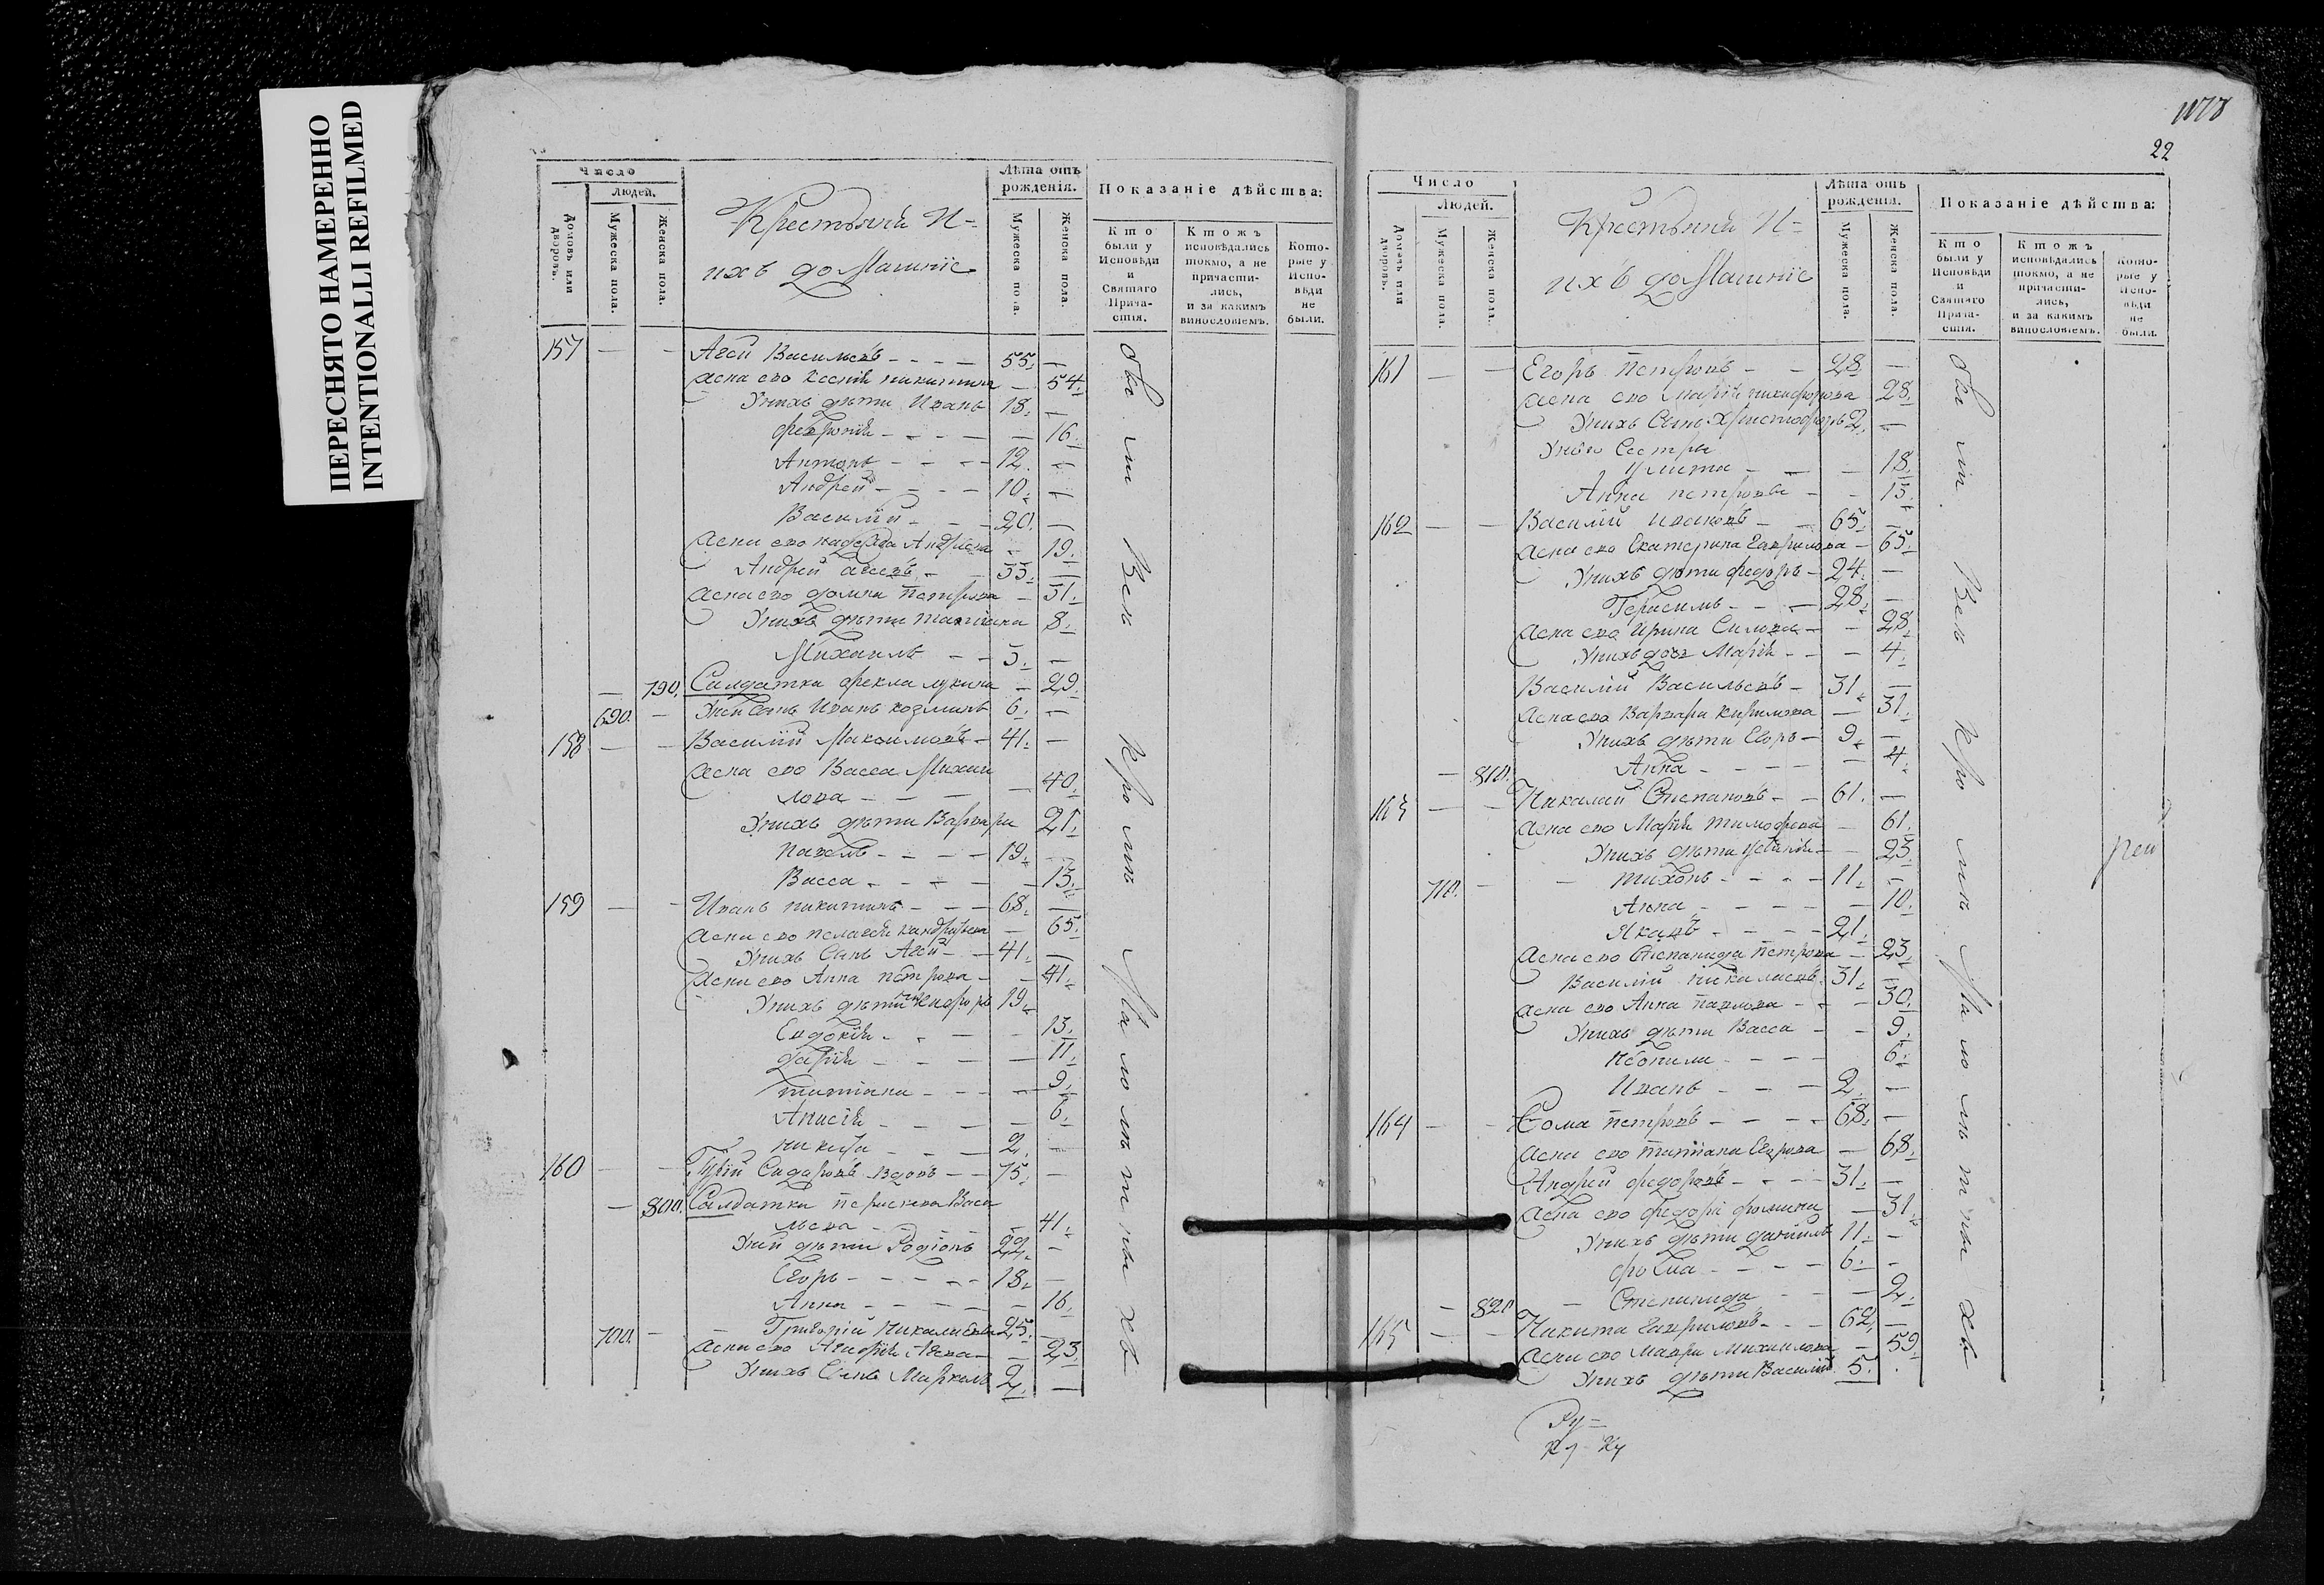 ПЕРЕСНЯТО НАМЕРЕННО
INTENTIONALLI REFILMED
Число
Людей.
Домовъ или дворовъ.
Мужеска пола.
Женска пола.
Крестьянѣ И=
ихъ домашніе
Лѣта отъ рожденія.
Мужеска пола.
Женска пола.
Показаніе дѣйства:
Кто были у Исповѣди и Святаго Прича-стія.
Ктожъ исповѣдались токмо, а не причасти-лись, и за какимъ винословіемъ.
Кото-рые у Испо-вѣди не были.
157 — — Агей Васильевъ — 55. —
жена ево Ксенія никитина — 54.
Унихъ дѣти Иванъ 18. —
феврония — 16.
Антонъ — 12. —
Андрей — 10. —
Василий — 20. —
жена ево надежда Андреева — 19.
Андрей агеевъ — 33. —
жена ево домна Петрова — 31.
Унихъ дѣти татіана 8.
Михаилъ — 3. —
— 790. Салдатка фекла лукина — 29.
690. — Унеи сынъ Иванъ козминъ 6. —
158 — — Василий Максимовъ — 41. —
жена ево Васса Михаи
лова — 40.
Унихъ дѣти Варвара 21.
павелъ — 19. —
Васса — 13.
159 — — Иванъ никитинъ — 68. —
жена ево пелагея кандратьева — 65.
Унихъ сынъ Агей — 41. —
жена ево Анна петрова — 41.
Унихъ дѣти никифоръ 19.
Евдокія — 13.
дарія — 11.
татіана — 9.
Анисія — 6.
никита — 2. —
160 — — Гурій Сидаровъ вдовъ — 75. —
— 800. Салдатка параскева Васи
льева — 41.
Уней дѣти Родіонъ 22. —
Егоръ — 18. —
Анна — 16.
700. — Григорій Николаевъ 25. —
жена ево Агафія Агеева — 23.
Унихъ сынъ Маркелъ 2. —
Обы ли Вси Кро мѣ Ма ло лѣ т ны хъ
22
Число
Людей.
Домовъ или дворовъ.
Мужеска пола.
Женска пола.
Крестьянѣ И=
ихъ домашніе
Лѣта отъ рожденія.
Мужеска пола.
Женска пола.
Показаніе дѣйства:
Кто были у Исповѣди и Святаго Прича-стія.
Ктожъ исповѣдались токмо, а не причасти-лись, и за какимъ винословіемъ.
Кото-рые у Испо-вѣди не были.
161 — — Егоръ Петровъ — 28. —
жена ево марія никифорова 28.
Унихъ Сынъ Христофоръ 2. —
Унево Сестры
улита — 18.
Анна петрова — 13.
162 — — Василий Ивановъ — 65. —
жена ево Екатерина Гаврилова — 65.
Унихъ дѣти федоръ — 24. —
Герасимъ — 28. —
жена ево Ирина Силова — 28.
Унихъ дочь Марія — 4.
Василий Васильевъ — 31. —
жена ево Варвара кирилова — 31.
Унихъ дѣти Егоръ — 9. —
— 810. Анна — 4.
163 — — Николай Степановъ — 61. —
жена ево Марія тимофеева — 61.
Унихъ дѣти — 23.
710. — тихонъ — 11. —
Анна — 10.
Яковъ — 21.
жена ево Степанида Петрова — 23.
Василий николаевъ 31. —
жена ево Анна павлова — 30.
Унихъ дѣти Васса — 9.
неонила — 6.
Иванъ — 2. —
164 — — Фома Петровъ — 68. —
жена ево татіана Егорова — 68.
Андрей федоровъ — 31. —
жена ево федора фомина — 31.
Унихъ дѣти данііилъ 11. —
фома — 6. —
— 820 — Степанида — 2.
165 — — Никита Гавриловъ — 62. —
жена ево Мавра Михаилова — 59.
Унихъ дѣти Василий 5.
Обы ли Вси Кро мѣ Ма ло лѣ т ны хъ
рей